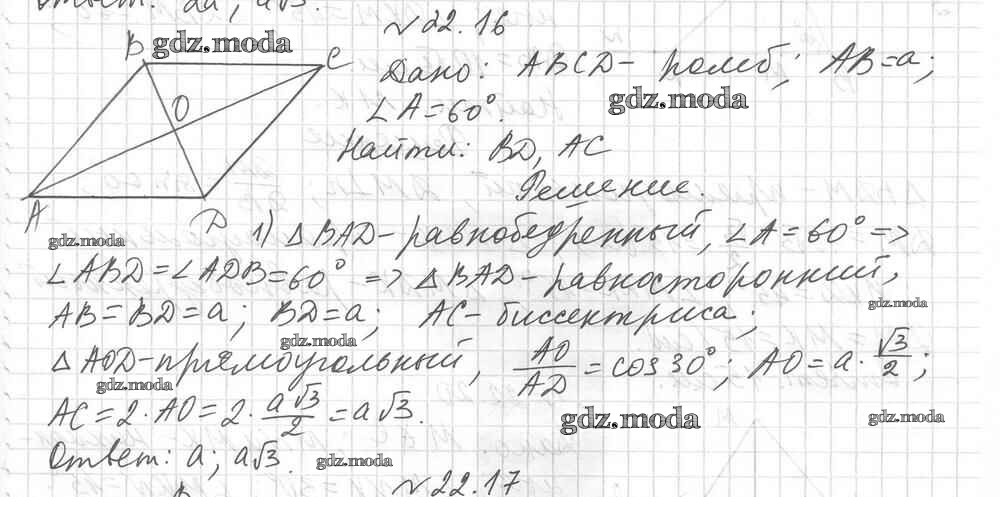 Ответ: 2a; a√3.
№22.16
B
gdz.moda
C
O
A
D
Дано: ABCD - ромб; AB=a;
gdz.moda
∠A=60°.
Найти: BD, AC
Решение.
gdz.moda
1) △BAD - равнобедренный, ∠A=60° =>
∠ABD=∠ADB=60° => △BAD - равносторонний,
gdz.moda
AB=BD=a; BD=a; AC - биссектриса;
gdz.moda
△AOD - прямоугольный, AO/AD = cos 30°; AO=a·√3/2;
gdz.moda
AC=2·AO=2·a√3/2=a√3.
gdz.moda
gdz.moda
Ответ: a; a√3.
gdz.moda
№22.17